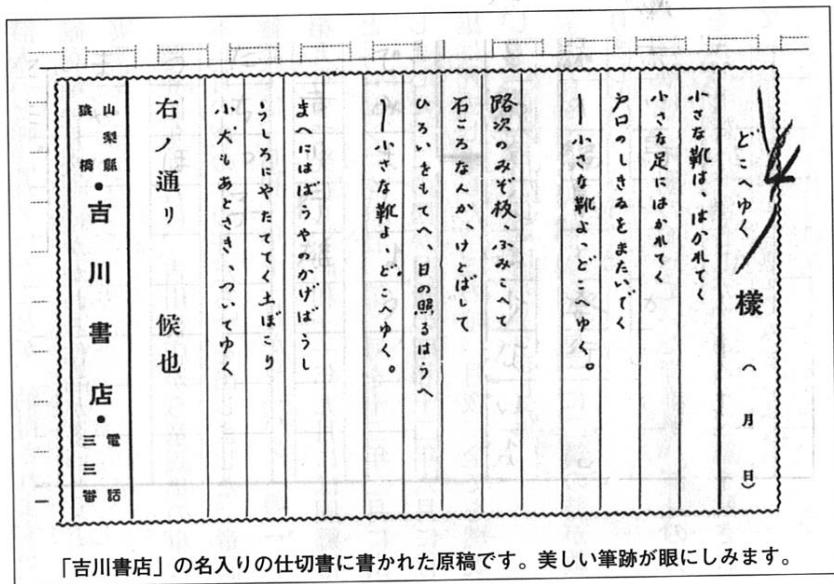 どこへゆく
様 (月日)
小さな靴は、はかれてく
小さな足にはかれてく
戸口のしきゐをまたいでく
―小さな靴よ、どこへゆく。
路次のみぞ板、ふみこへて
石ころなんか、けとばして
ひろいおもてへ、日の照るはうへ
―小さな靴よ、どこへゆく。
まへにはばうやのかげばうし
うしろにやたててく土ぼこり
小犬もあとさき、ついてゆく
右ノ通リ 候也
山梨縣
猿橋
・吉川書店・
電話
三三番
「吉川書店」の名入りの仕切書に書かれた原稿です。美しい筆跡が眼にしみます。